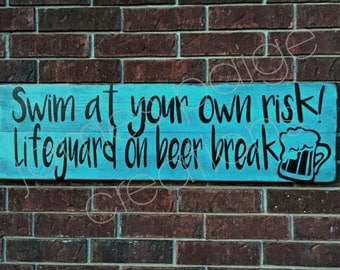 Swim at your own risk!
Lifeguard on beer break